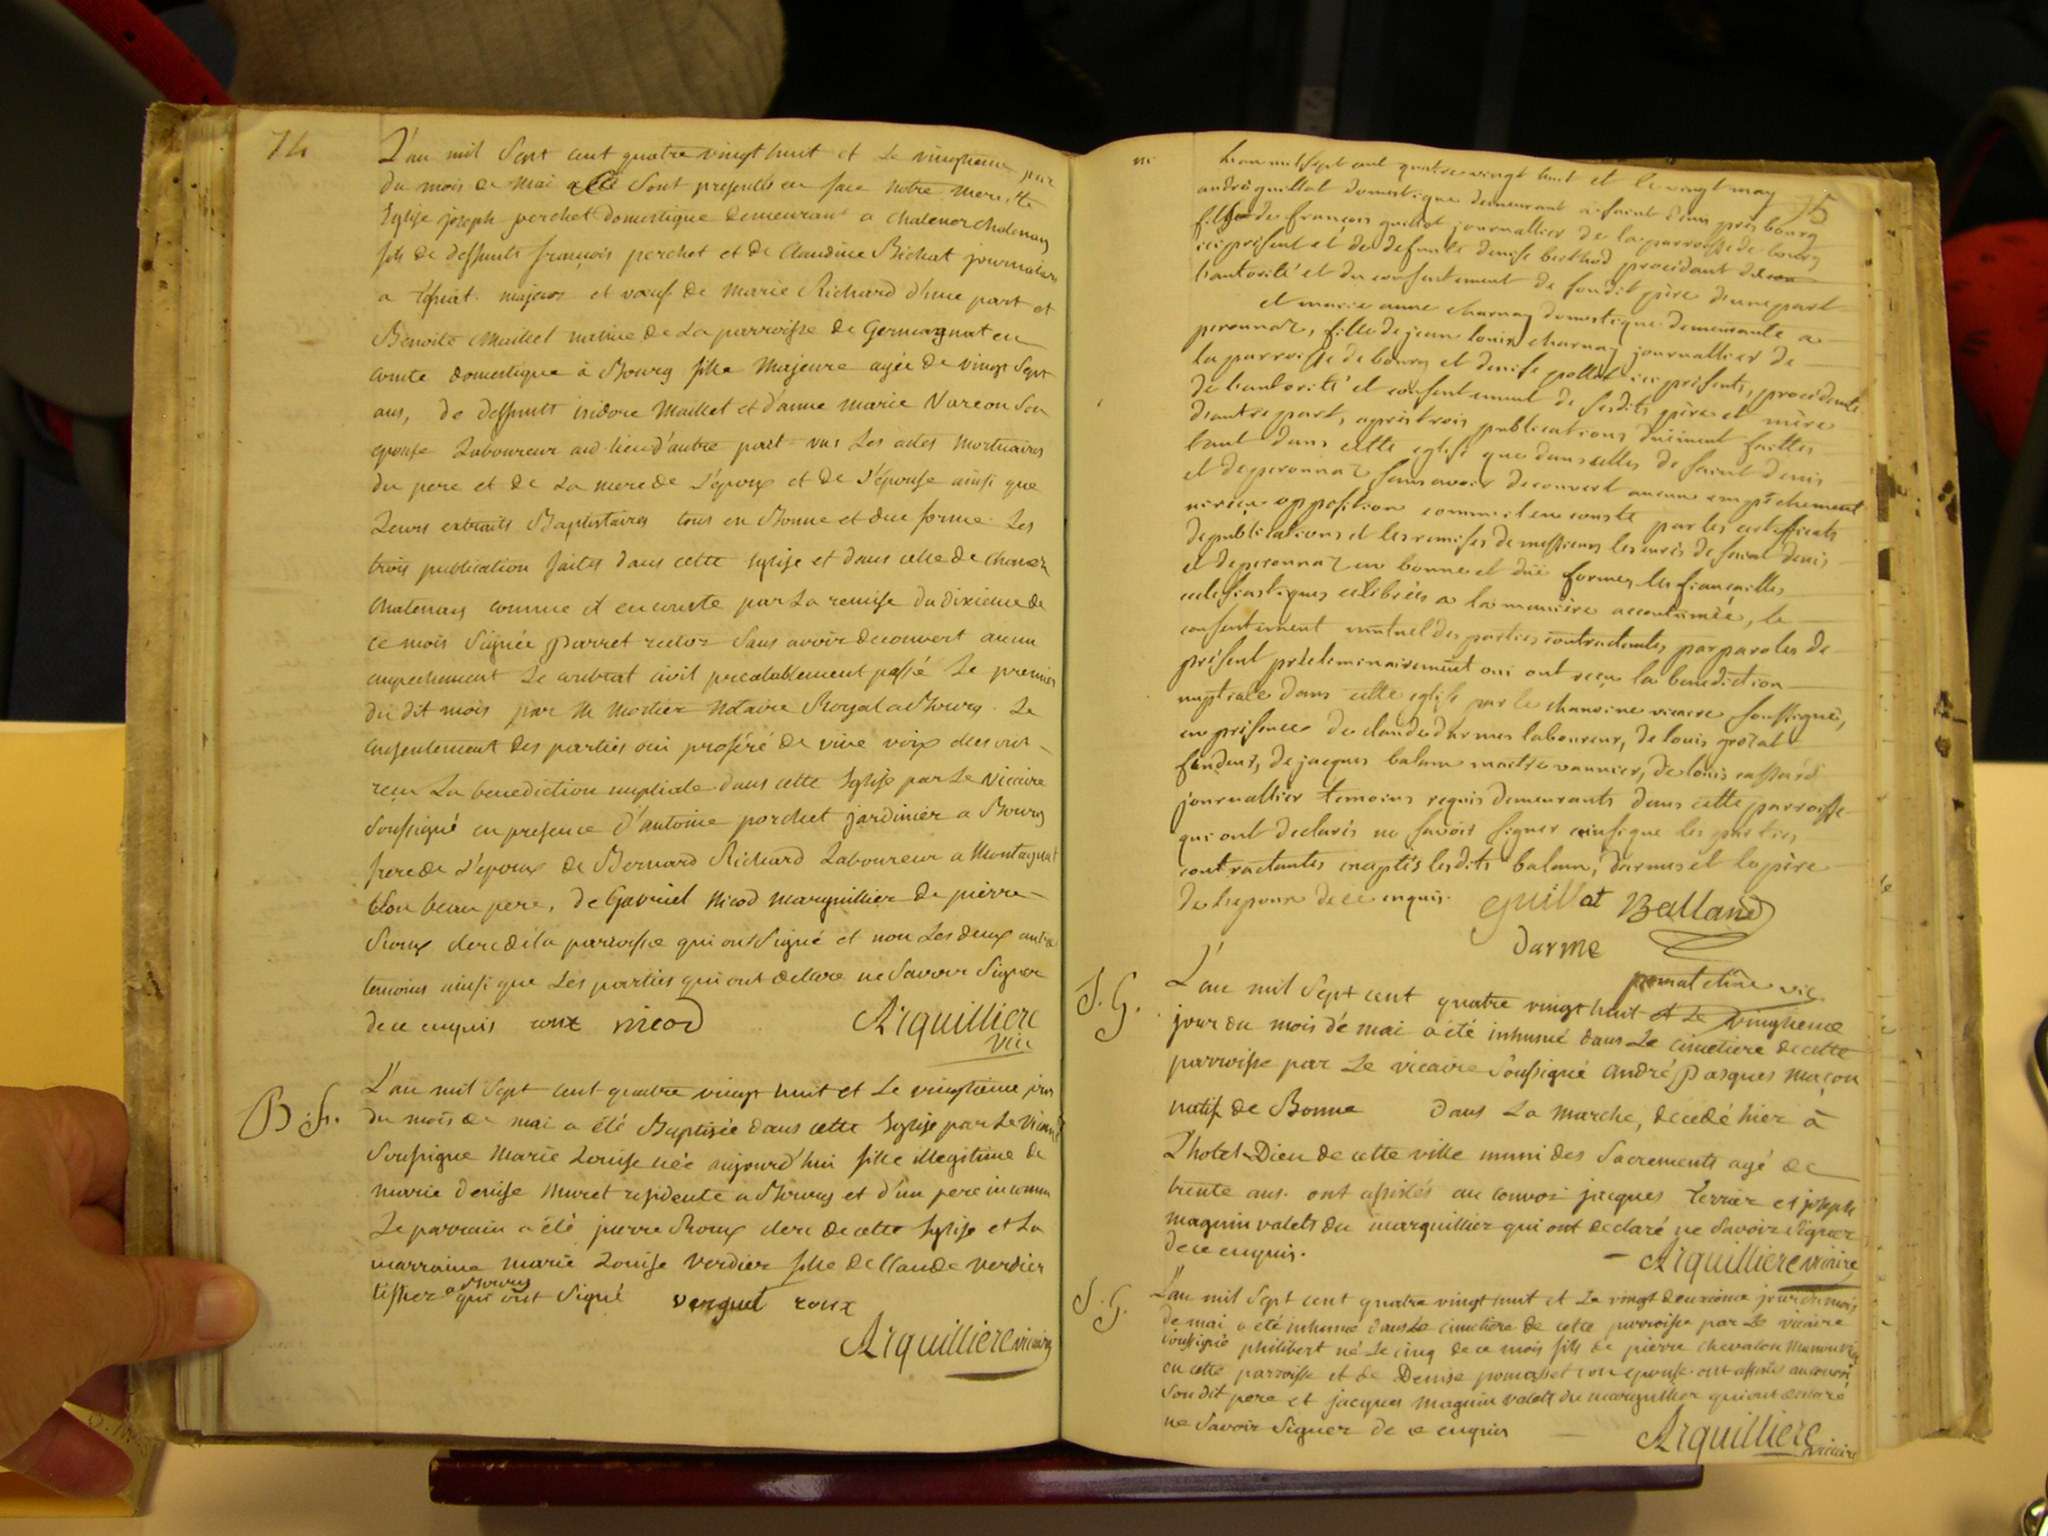 74
L'an mil Sept cent quatre vingt huit et Le vingtieme jour
du mois de Mai Sont presentés en face notre mere Ste
Eglise joseph perchet Domestique demeurant a chatenay
fils de deffunts françois perchet et de Claudine Bichat journaliers
a majeur et voeuf de Marie Richard d'une part et
Benoite Maillet native de La parroisse de Germagnat en
comte domestique à Bourg fille Majeure agée de vingt Sept
ans, de deffunts isidore Maillet et d'anne Marie Nareon Son
epouse Laboureur au d. lieu d'autre part vus Les actes Mortuaires
du pere et de La mere de L'époux et de L'épouse ainsi que
Leurs extraits Baptistaires tous en Bonne et due forme Les
trois publication faites dans cette Eglise et dans celle de
Chatenay comme il en conste par La remise du dixieme de
ce mois Signée Parret recteur Sans avoir decouvert aucun
empechement Le contrat civil prealablement passé Le premier
du dit mois par M Mortier Notaire Royal a Bourg. Le
consentement des parties oui proféré de vive voix elles ont
reçu La benediction nuptiale dans cette Eglise par Le Vicaire
Soussigné en presence d'antoine porchet jardinier a Bourg
frere de L'epoux de Bernard Richard Laboureur a Montagnat
Son beau pere, de Gabriel Nicod Marguillier de pierre
Roux clerc de la parroisse qui ont Signé et non Les deux autre
temoins ainsi que Les parties qui ont declare ne Savoir Signer
de ce enquis roux nicod Arquilliere
vic
B. f.
L'an mil Sept cent quatre vingt huit et Le vingtieme jour
du mois de mai a été Baptisée dans cette Eglise par Le Vicaire
Soussigne Marie Louise née aujourd'hui fille illegitime de
marie denise Muret residente a Bourg et d'un pere inconnu
Le parrain a été pierre Roux clerc de cette Eglise et La
marraine marie Louise Verdier fille de Claude verdier
tisser a Bourg qui ont Signé verguet roux
Arquilliere vicaire
m
75
L'an mil Sept cent quatre vingt huit et le vingt may
andré guillot domestique demeurant à saint denis près bourg
fils de françois guillot journallier de la parroisse de bourg
ici présent et de defunte denise berthod procédant de
l'autorité et du consentement de son dit père d'une part
et marie anne charnay domestique demeurante a
peronnaz, fille de jean louis charnay journallier de
la parroisse de bourg et denise pollet ici présents, procédante
de l'autorité et consentement de sesdits père et mère
d'autre part, après trois publications dûement faittes
tant dans cette eglise que dans celles de saint denis
et de peronnaz sans avoir découvert aucun empêchement
ni reçu opposition comme il en conste par les certifficats
de publications et les remises de messieurs les curés de saint denis
et de peronnaz en bonne et düe forme, les fiançailles
ecclesiastiques célébrées a la manière accoutumée, le
consentement mutuel des parties contractantes par paroles de
présent préliminairement oui ont reçu la benediction
nuptiale dans cette eglise par le chanoine vicaire soussigné,
en présence de claude darmes laboureur, de louis prozal
fondeur, de jacques balam maitre vannier, de louis
journallier temoins requis demeurants dans cette parroisse
qui ont declarés ne savoir signer ainsi que les parties
contractantes exceptés lesdits balam, darmes et le père
de l'epoux de ce enquis. guillot Balland
darme
S. G.
L'an mil Sept cent quatre vingt huit et Le vingtieme
jour du mois de mai a été inhumé dans Le cimetiere de cette
parroisse par Le vicaire Soussigné andré Pasques maçon
natif de Bonne dans La marche, decedé hier à
L'hotel Dieu de cette ville muni des Sacrements agé de
trente ans. ont assistés au convoi jacques terrier et joseph
maguin valets du marguillier qui ont declaré ne Savoir Signer
de ce enquis. Arquilliere vicaire
S. G.
L'an mil Sept cent quatre vingt huit et Le vingt deuxieme jour du mois
de mai a été inhumé dans Le cimetiere de cette parroisse par Le vicaire
soussigné philibert né Le cinq de ce mois fils de pierre chevalon
en cette parroisse et de Denise son epouse ont assistés au convoi
Son dit pere et jacques maguin valets du marguillier qui ont declaré
ne Savoir Signer de ce enquis Arquilliere
vicaire